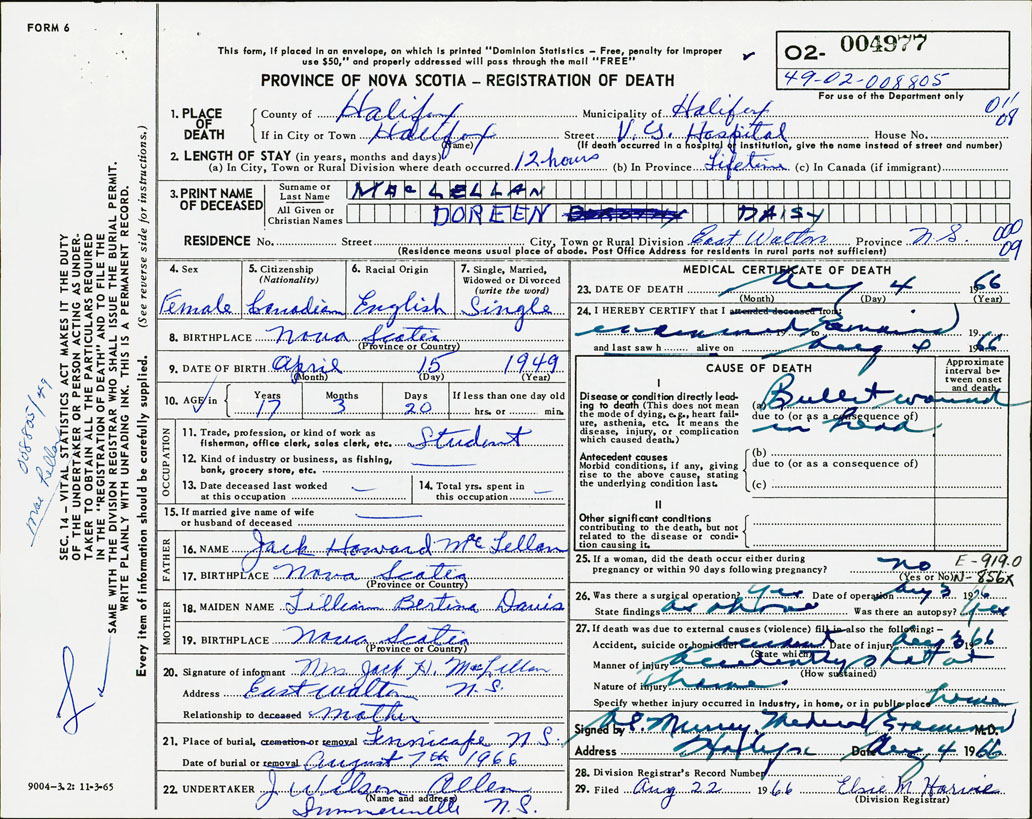 FORM 6
This form, if placed in an envelope, on which is printed "Dominion Statistics – Free, penalty for improper
use $50," and properly addressed will pass through the mail "FREE"
PROVINCE OF NOVA SCOTIA – REGISTRATION OF DEATH
O2- 004977
49-02-008805
For use of the Department only
1. PLACE OF DEATH
County of Halifax Municipality of Halifax 011
If in City or Town Halifax Street V.G. Hospital House No. 08
(Name) (If death occurred in a hospital or institution, give the name instead of street and number)
2. LENGTH OF STAY (in years, months and days)
(a) In City, Town or Rural Division where death occurred 12 hours (b) In Province Lifetime (c) In Canada (if immigrant)
3. PRINT NAME OF DECEASED
Surname or Last Name MacLELLAN
All Given or Christian Names DOREEN DAISY
RESIDENCE No. Street City, Town or Rural Division East Walton Province N.S. 000
(Residence means usual place of abode. Post Office Address for residents in rural parts not sufficient) 09
4. Sex Female
5. Citizenship (Nationality) Canadian
6. Racial Origin English
7. Single, Married, Widowed or Divorced (write the word) Single
8. BIRTHPLACE Nova Scotia
(Province or Country)
9. DATE OF BIRTH April 15 1949
(Month) (Day) (Year)
10. AGE in Years Months Days If less than one day old
17 3 20 hrs. or min.
OCCUPATION
11. Trade, profession, or kind of work as
fisherman, office clerk, sales clerk, etc. Student
12. Kind of industry or business, as fishing,
bank, grocery store, etc.
13. Date deceased last worked
at this occupation
14. Total yrs. spent in
this occupation
15. If married give name of wife
or husband of deceased
FATHER
16. NAME Jack Howard McLellan
17. BIRTHPLACE Nova Scotia
(Province or Country)
MOTHER
18. MAIDEN NAME Lillian Bertina Davis
19. BIRTHPLACE Nova Scotia
(Province or Country)
20. Signature of informant Mrs Jack H. MacLellan
Address East Walton N.S.
Relationship to deceased mother
21. Place of burial, cremation or removal Tennicape N.S.
Date of burial or removal August 7th 1966
22. UNDERTAKER J Wilson Allen
(Name and address)
Summerville N.S.
MEDICAL CERTIFICATE OF DEATH
23. DATE OF DEATH Aug 4 1966
(Month) (Day) (Year)
24. I HEREBY CERTIFY that I attended deceased from:
examined Remains 19 to 19
and last saw h alive on Aug 4 1966
CAUSE OF DEATH
Approximate interval between onset and death
I
Disease or condition directly leading to death (This does not mean
the mode of dying, e.g., heart failure, asthenia, etc. It means the
disease, injury, or complication
which caused death.)
(a) Bullet wound
due to (or as a consequence of)
in head
Antecedent causes
Morbid conditions, if any, giving
rise to the above cause, stating
the underlying condition last.
(b)
due to (or as a consequence of)
(c)
II
Other significant conditions
contributing to the death, but not
related to the disease or condition causing it.
25. If a woman, did the death occur either during
pregnancy or within 90 days following pregnancy? no
(Yes or No)
E-919.0
N-856X
26. Was there a surgical operation? yes Date of operation Aug 3 1966
State findings as above Was there an autopsy? yes
27. If death was due to external causes (violence) fill in also the following: –
Accident, suicide or homicide accident Date of injury Aug 3 66
(State which)
Manner of injury accidently shot at
(How sustained)
Nature of injury home.
Specify whether injury occurred in industry, in home, or in public place home
Signed by Murray Medical Examiner M.D.
Address Halifax Date Aug 4 1966
28. Division Registrar's Record Number
29. Filed Aug 22 1966 Elsie M Harvie
(Division Registrar)
SEC. 14 – VITAL STATISTICS ACT MAKES IT THE DUTY
OF THE UNDERTAKER OR PERSON ACTING AS UNDER-
TAKER TO OBTAIN ALL THE PARTICULARS REQUIRED
IN THE "REGISTRATION OF DEATH" AND TO FILE THE
SAME WITH THE DIVISION REGISTRAR WHO SHALL ISSUE THE BURIAL PERMIT.
WRITE PLAINLY WITH UNFADING INK. THIS IS A PERMANENT RECORD.
Every item of information should be carefully supplied. (See reverse side for instructions.)
008805/49
9004-3.2: 11-3-65